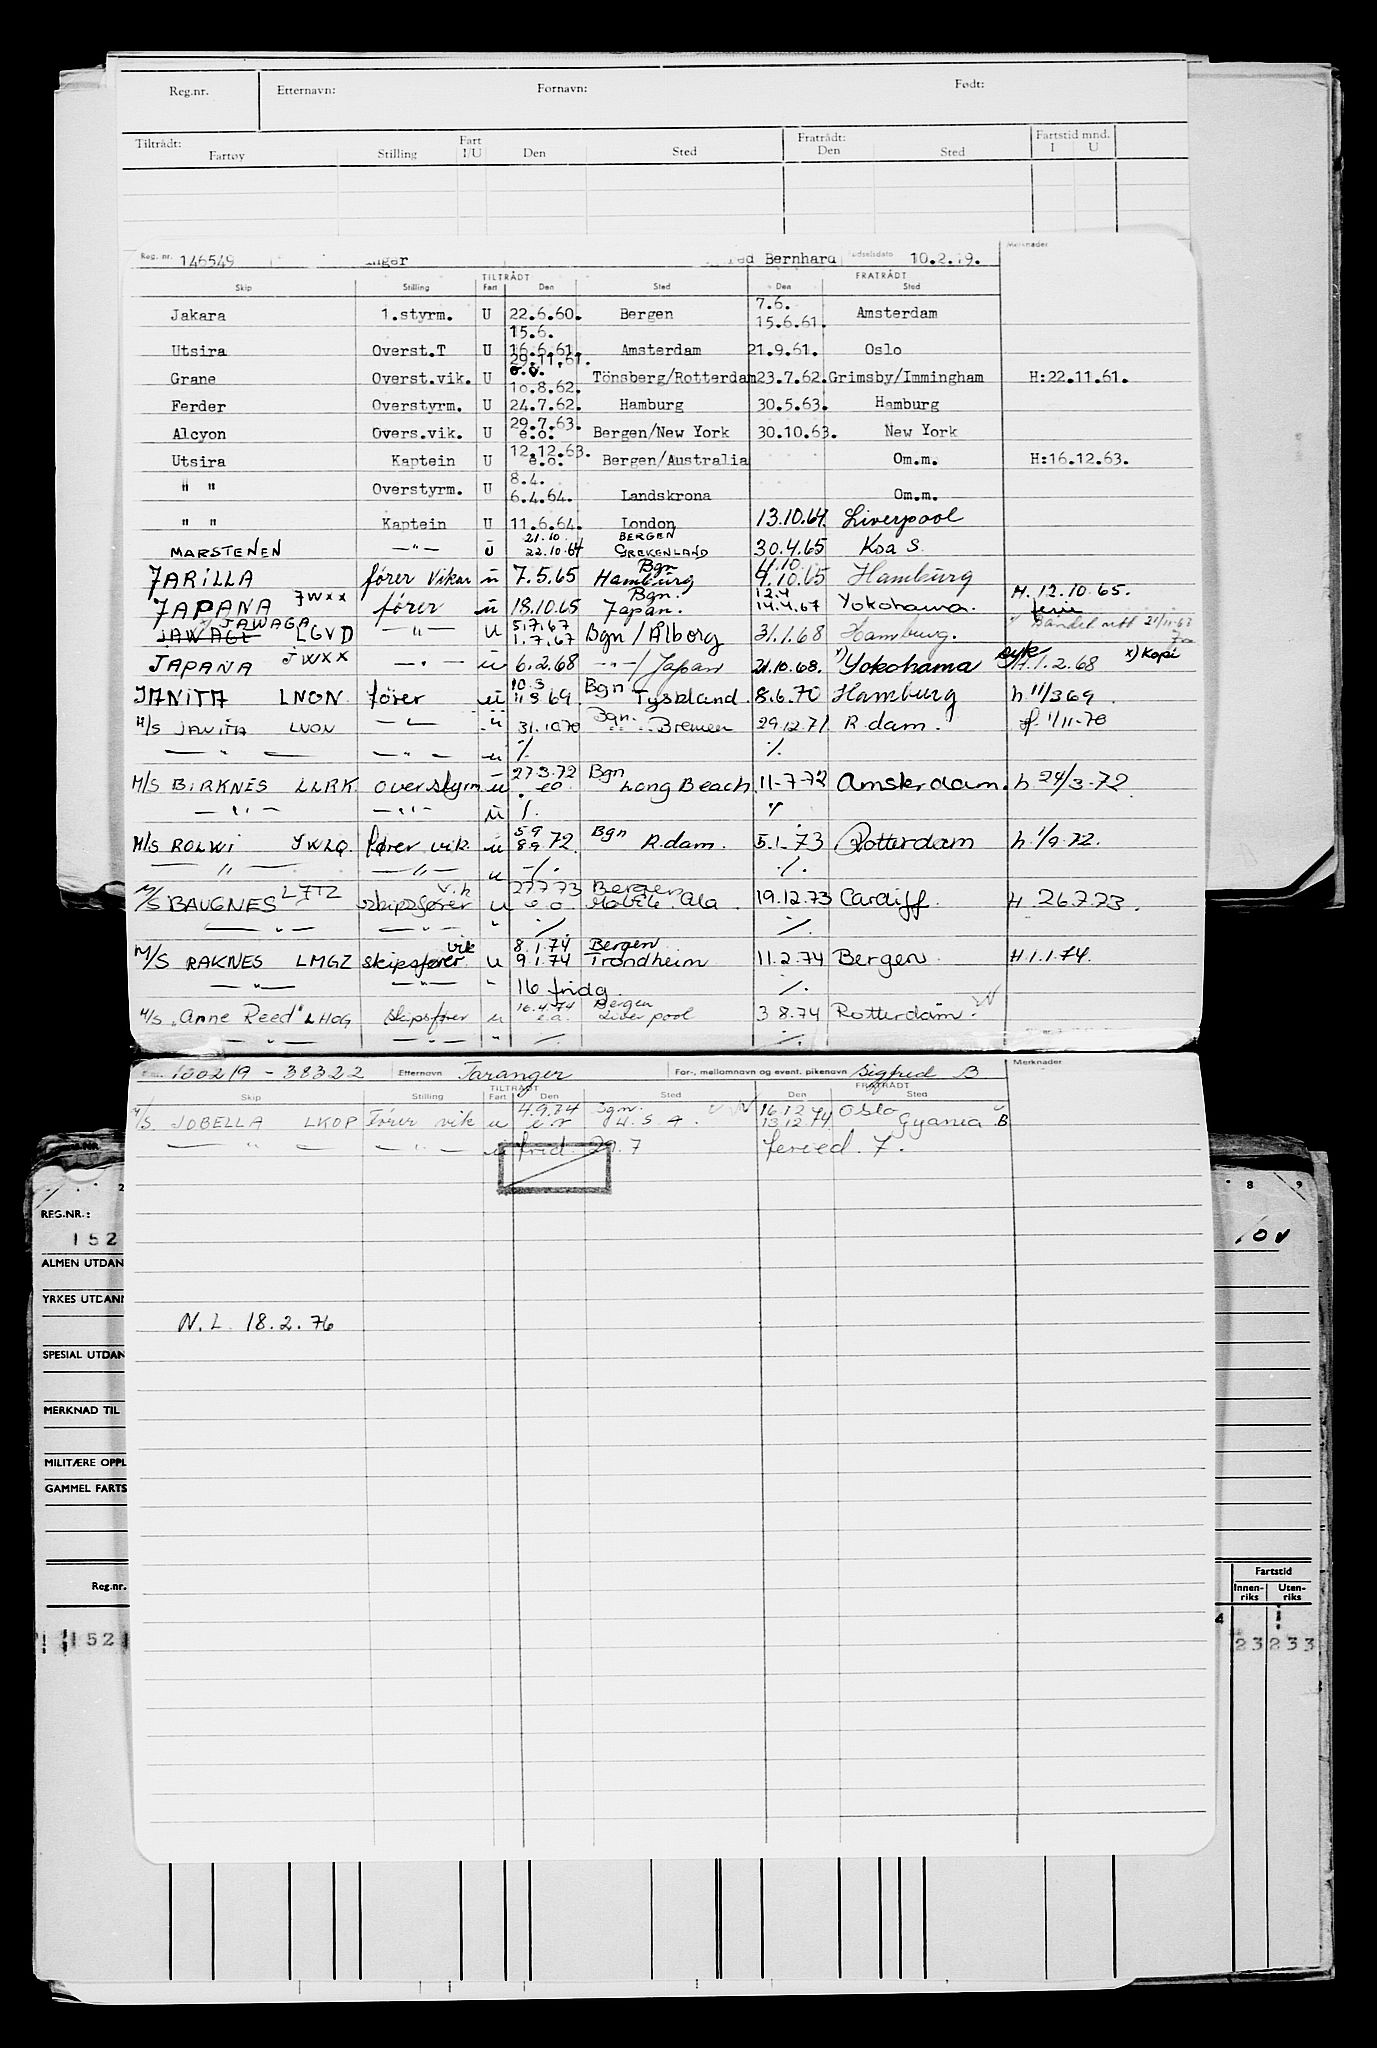 Reg.nr. Etternavn: Fornavn: Født:
Tiltrådt: Fart Fratrådt: Fartstid mnd.
Fartøy Stilling I/U Den Sted Den Sted I U
Reg. nr. 146549 nger red Bernhard Fødselsdato 10.2.19. Merknader
TILTRÅDT FRATRÅDT
Skip Stilling Fart Den Sted Den Sted
7.6.
Jakara 1.styrm. U 22.6.60. Bergen 15.6.61. Amsterdam
15.6.
Utsira Overst.T U 16.6.61. Amsterdam 21.9.61. Oslo
29.11.61.
Grane Overst.vik. U Tönsberg/Rotterdam 23.7.62. Grimsby/Immingham H:22.11.61.
10.8.62.
Ferder Overstyrm. U 24.7.62. Hamburg 30.5.63. Hamburg
29.7.63.
Alcyon Overs.vik. U e.o. Bergen/New York 30.10.63. New York
12.12.63.
Utsira Kaptein U e.o. Bergen/Australia Om.m. H:16.12.63.
8.4.
" " Overstyrm. U 6.4.64. Landskrona Om.m.
" " Kaptein U 11.6.64. London 13.10.64. Liverpool
21.10 BERGEN
MARSTENEN —"— U 22.10.64 GREKENLAND 30.4.65 Koa S.
Bgn 4.10
JARILLA fører vikar u 7.5.65 Hamburg 9.10.65 Hamburg
JWXX Bgn. 12.4 H. 12.10.65.
JAPANA fører u 18.10.65 Japan. 14.4.67 Yokohama. ferie
JAWAGA 5.7.67
JAWAGE LGVD —"— u 1.7.67 Bgn / Ålborg 31.1.68 Hamburg.
JAPANA JWXX —"— u 6.2.68 —"—/Japan 21.10.68. x) Yokohama syk H.1.2.68 x) Kopi
10.3 Bgn
JANITA LNON fører u 11369 Tyskland. 8.6.70 Hamburg h 11/369
Bgn.
M/S JANITA LNON —"— u 31.1070 Bremen 29.12.71. R.dam. f. 1/11-70
— " — —"— u ·/· ·/·
27.3.72 Bgn
M/S BIRKNES LLRK overstyrm u eo Long Beach 11-7-72 Amsterdam. h 24/3-72
— " — —"— u ·/· ·/·
59 Bgn
M/S ROLWI JWLQ. fører vik. u 8972. R.dam. 5.1.73 Rotterdam h. 1/9.72.
— " — —"— u ·/· ·/·
LJTZ v.h 27773 Bergen
M/S BAUGNES skipsfører u e o Mobile Ala. 19.12.73 Cardiff. H 26.7.73.
— " — —"— " ·/· ·/·
vik 8.1.74 Bergen
M/S RAKNES LMGZ skipsfører u 9.1.74 Trondheim 11.2.74 Bergen H1.1.74.
— " — —"— " 16 fridg. ·/·
16.4.74 Bergen
M/S "Anne Reed" LHOG Skipsfører u e.o. Liverpool 3 8.74 Rotterdam.
— " — —"— " ·/· ·/·
100219 - 38322 Etternavn Taranger For-, mellomnavn og event. pikenavn Sigfred B Merknader
TILTRÅDT FRATRÅDT
Skip Stilling Fart Den Sted Den Sted
4.9.74 Bgn. 16.12.74 Oslo
M/S. JOBELLA LKOP Fører vik u U.S.A. 13.12.74 Gyania B
— " — —"— u frid. 29.7 feried. 7.
N.L. 18.2.76
2 8 9
REG.NR.:
152 10v
ALMEN UTDAN
YRKES UTDANN
SPESIAL UTDAN
MERKNAD TIL
MILITÆRE OPPL
GAMMEL FARTS
Fartstid
Reg.nr. Innen-riks Uten-riks
152 4 23 233